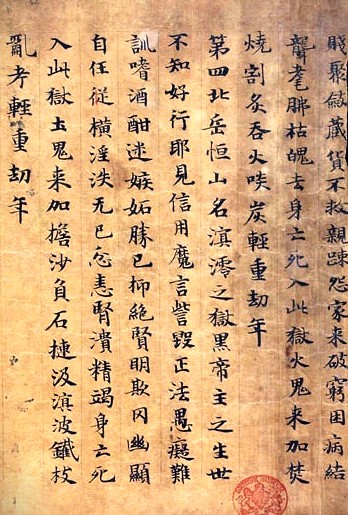 賤聚斂藏貨不救親踈怨家来破窮困病結
聾耄胇枯魄去身亡死入此獄火鬼来加焚
燒割炙吞火啖炭輕重劫年
第四北岳恒山名滇澪之獄黑帝主之生世
不知好行耶見信用魔言訾毀正法愚癡難
訓嗜酒酣迷嫉妬勝已抑絶賢明欺冈幽顯
自任從橫淫泆无已忿恚腎潰精竭身亡死
入此獄土鬼来加擔沙負石揵汲滇波鐵杖
亂考輕重劫年